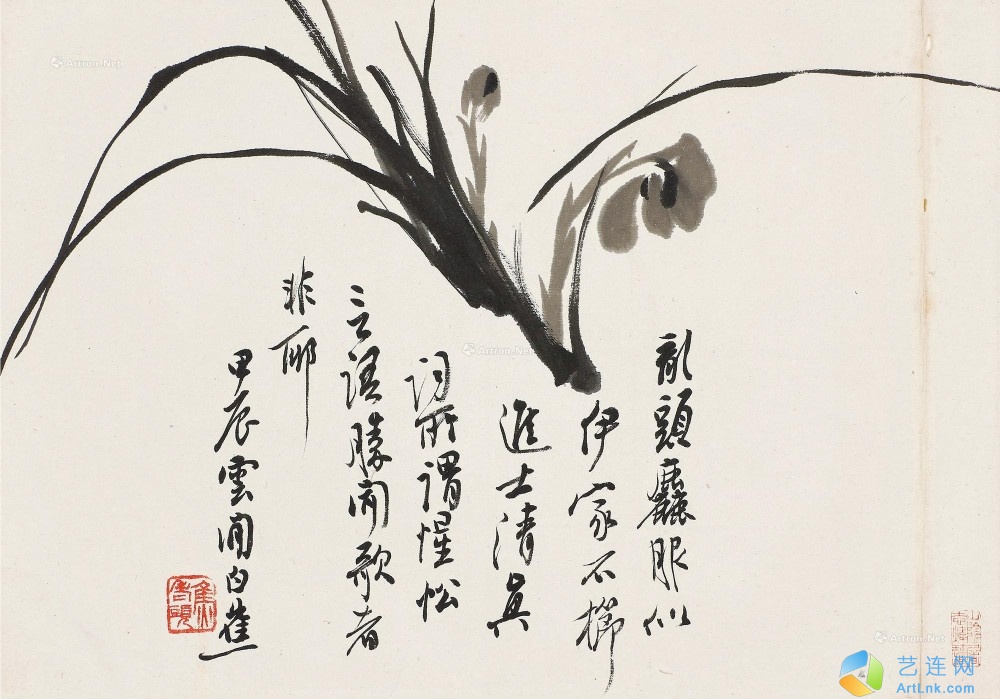 亂頭麤服似
伊家不櫛
進士清真
詞所謂惺忪
言語勝聞歌者
非耶
甲辰雲間白蕉
Artron.Net
Artron.Net
Artron.Net
艺连网
ArtLnk.com